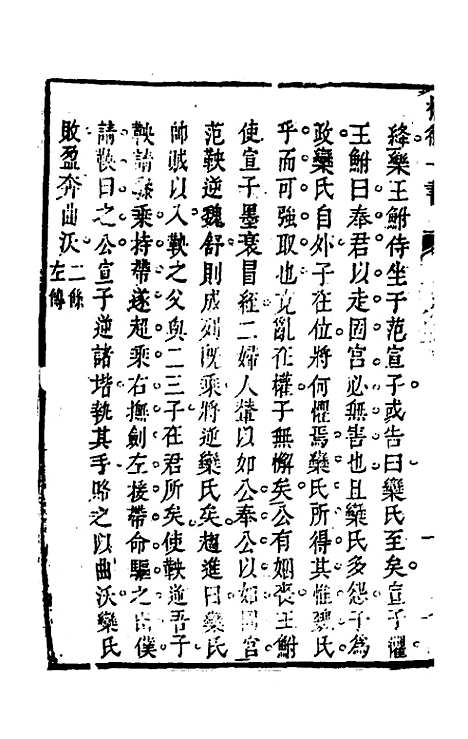 絳欒王鮒侍坐于范宣子或告曰欒氏至矣宣子懼
王鮒曰奉君以走固宮必無害也且欒氏多怨子為
政欒氏自外子在位將何懼焉欒氏所得其惟魏氏
乎而可強取也克亂在權子無懈矣公有姻喪王鮒
使宣子墨衰冒絰二婦人輦以如公奉公以如固宮
范鞅逆魏舒則成列既乘將逆欒氏矣趨進曰欒氏
帥賊以入鞅之父與二三子在君所矣使鞅逆吾子
鞅請驂乘持帶遂超乘右撫劍左援帶命驅之出僕
請鞅曰之公宣子逆諸堦執其手賂之以曲沃欒氏
敗盈奔曲沃二條左傳